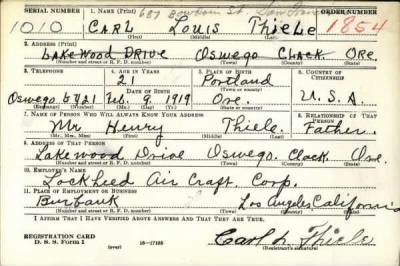 SERIAL NUMBER 1. NAME (Print) ORDER NUMBER
1010 CARL Louis Thiele 1854
(First) (Middle) (Last)
2. ADDRESS (Print)
Lakewood DRIVE Oswego Clack Ore.
(Number and street or R. F. D. number) (Town) (County) (State)
3. TELEPHONE 4. AGE IN YEARS 5. PLACE OF BIRTH 6. COUNTRY OF CITIZENSHIP
21 Portland
DATE OF BIRTH (Town or county)
Oswego 5721 Feb. 9, 1919 Ore. U.S.A.
(Exchange) (Number) (Mo.) (Day) (Yr.) (State or country)
7. NAME OF PERSON WHO WILL ALWAYS KNOW YOUR ADDRESS 8. RELATIONSHIP OF THAT PERSON
Mr Henry Thiele. Father
(Mr., Mrs., Miss) (First) (Middle) (Last)
9. ADDRESS OF THAT PERSON
Lakewood Drive Oswego. Clack. Ore.
(Number and street or R. F. D. number) (Town) (County) (State)
10. EMPLOYER'S NAME
Lockheed Air Craft. Corp.
11. PLACE OF EMPLOYMENT OR BUSINESS
Burbank Los Angeles California
(Number and street or R. F. D. number) (Town) (County) (State)
I AFFIRM THAT I HAVE VERIFIED ABOVE ANSWERS AND THAT THEY ARE TRUE.
REGISTRATION CARD
D. S. S. Form 1 (over) 16-17105 Carl L. Thiele
(Registrant's signature)